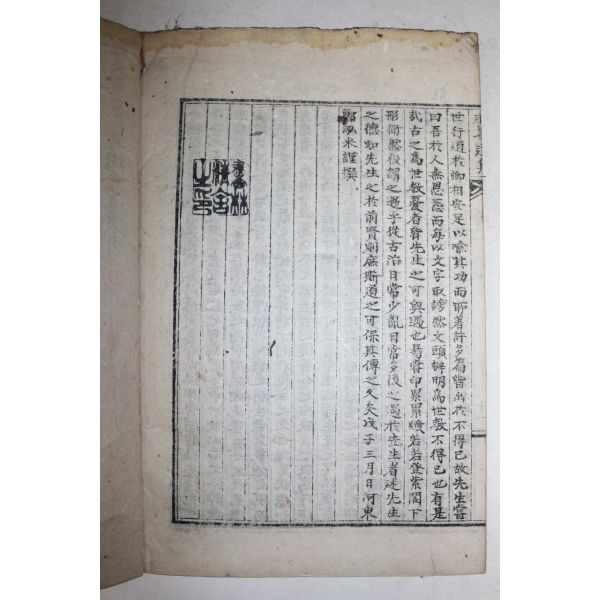 世行道於卿相宜足以喩其功而所著許多篇皆出於不得已故先生嘗
曰吾於人無恩怨而每以文字取謗然文頭辨明爲世敎不得已也有是
哉古之爲世敎憂者胥先生之可與遇也曷嘗印累累綬若若登紫閣下
形衛然後謂之遇乎從古治日常少亂日常多後之遇於先生者述先生
之德如先生之於前賢則庶斯道之可保其傳之久矣戊子三月日河東
鄭 謹撰
書林
精舍
之印